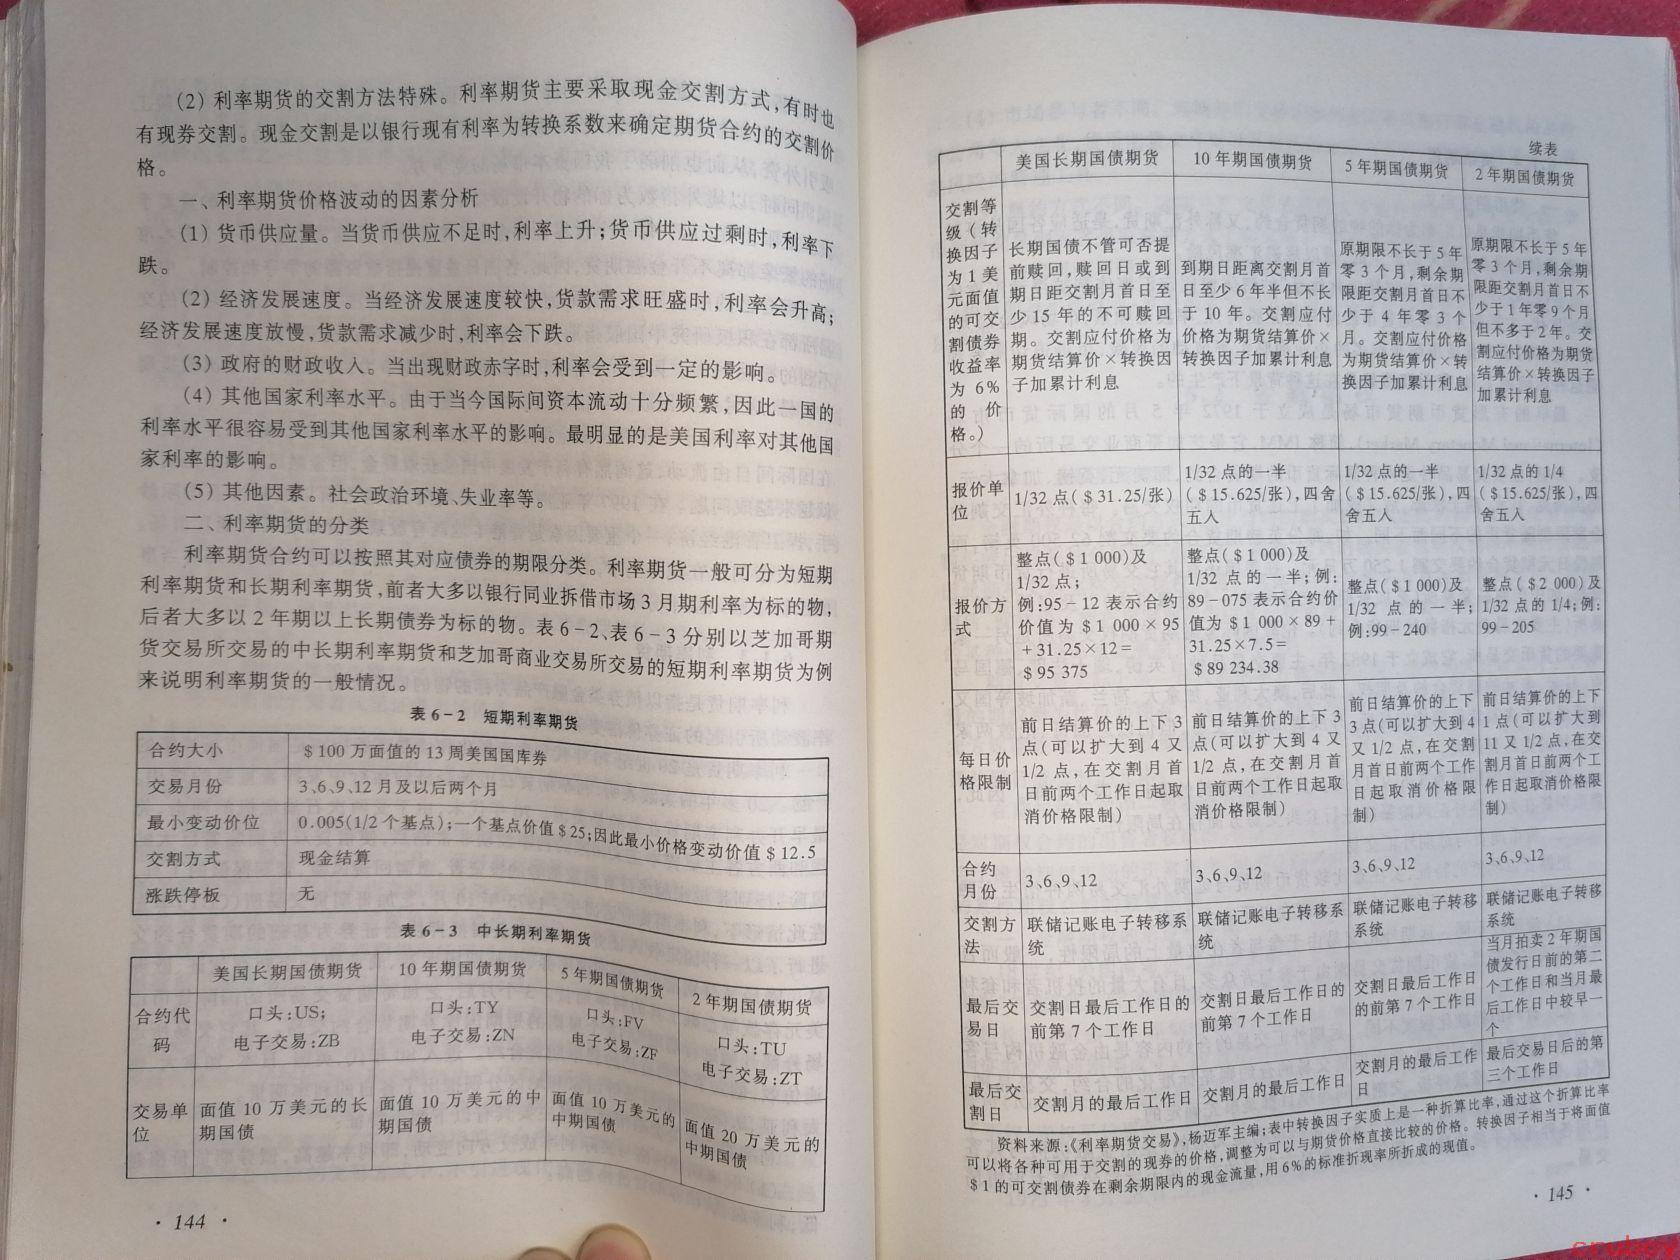 (2) 利率期货的交割方法特殊。利率期货主要采取现金交割方式,有时也
有现券交割。现金交割是以银行现有利率为转换系数来确定期货合约的交割价
格。
一、利率期货价格波动的因素分析
(1) 货币供应量。当货币供应不足时,利率上升;货币供应过剩时,利率下
跌。
(2) 经济发展速度。当经济发展速度较快,贷款需求旺盛时,利率会升高;
经济发展速度放慢,货款需求减少时,利率会下跌。
(3) 政府的财政收入。当出现财政赤字时,利率会受到一定的影响。
(4) 其他国家利率水平。由于当今国际间资本流动十分频繁,因此一国的
利率水平很容易受到其他国家利率水平的影响。最明显的是美国利率对其他国
家利率的影响。
(5) 其他因素。社会政治环境、失业率等。
二、利率期货的分类
利率期货合约可以按照其对应债券的期限分类。利率期货一般可分为短期
利率期货和长期利率期货,前者大多以银行同业拆借市场3月期利率为标的物,
后者大多以2年期以上长期债券为标的物。表6-2、表6-3分别以芝加哥期
货交易所交易的中长期利率期货和芝加哥商业交易所交易的短期利率期货为例
来说明利率期货的一般情况。
表6-2 短期利率期货
合约大小 $100万面值的13周美国国库券
交易月份 3、6、9、12月及以后两个月
最小变动价位 0.005(1/2个基点);一个基点价值$25;因此最小价格变动价值$12.5
交割方式 现金结算
涨跌停板 无
表6-3 中长期利率期货
美国长期国债期货 10年期国债期货 5年期国债期货 2年期国债期货
合约代 口头:US; 口头:TY 口头:FV 口头:TU
码 电子交易:ZB 电子交易:ZN 电子交易:ZF 电子交易:ZT
交易单 面值10万美元的长 面值10万美元的中 面值10万美元的 面值20万美元的
位 期国债 期国债 中期国债 中期国债
· 144 ·
续表
美国长期国债期货 10年期国债期货 5年期国债期货 2年期国债期货
交割等
级(转
换因子
为1美
元面值
的可交
割债券
收益率
为6%
的价
格。)
长期国债不管可否提
前赎回,赎回日或到
期日距交割月首日至
少15年的不可赎回
期。交割应付价格为
期货结算价×转换因
子加累计利息
到期日距离交割月首
日至少6年半但不长
于10年。交割应付
价格为期货结算价×
转换因子加累计利息
原期限不长于5年
零3个月,剩余期
限距交割月首日不
少于4年零3个
月。交割应付价格
为期货结算价×转
换因子加累计利息
原期限不长于5年
零3个月,剩余期
限距交割月首日不
少于1年零9个月
但不多于2年。交
割应付价格为期货
结算价×转换因子
加累计利息
报价单
位
1/32点($31.25/张)
1/32点的一半
($15.625/张),四舍
五人
1/32点的一半
($15.625/张),四
舍五人
1/32点的1/4
($15.625/张),四
舍五人
报价方
式
整点($1 000)及
1/32点;
例:95-12表示合约
价值为$1 000×95
+31.25×12=
$95 375
整点($1 000)及
1/32点的一半;例:
89-075表示合约价
值为$1 000×89+
31.25×7.5=
$89 234.38
整点($1 000)及
1/32点的一半;
例:99-240
整点($2 000)及
1/32点的1/4;例:
99-205
每日价
格限制
前日结算价的上下3
点(可以扩大到4又
1/2点,在交割月首
日前两个工作日起取
消价格限制)
前日结算价的上下3
点(可以扩大到4又
1/2点,在交割月首
日前两个工作日起取
消价格限制)
前日结算价的上下
3点(可以扩大到4
又1/2点,在交割
月首日前两个工作
日起取消价格限
制)
前日结算价的上下
1点(可以扩大到
11又1/2点,在交
割月首日前两个工
作日起取消价格限
制)
合约
月份
3、6、9、12
3、6、9、12
3、6、9、12
3、6、9、12
交割方
法
联储记账电子转移系
统
联储记账电子转移系
统
联储记账电子转移
系统
联储记账电子转移
系统
最后交
易日
交割日最后工作日的
前第7个工作日
交割日最后工作日的
前第7个工作日
交割日最后工作日
的前第7个工作日
当月拍卖2年期国
债发行日前的第二
个工作日和当月最
后工作日中较早一
个
最后交
割日
交割月的最后工作日
交割月的最后工作日
交割月的最后工作
日
最后交易日后的第
三个工作日
资料来源:《利率期货交易》,杨迈军主编;表中转换因子实质上是一种折算比率,通过这个折算比率
可以将各种可用于交割的现券的价格,调整为可以与期货价格直接比较的价格。转换因子相当于将面值
$1的可交割债券在剩余期限内的现金流量,用6%的标准折现率所折成的现值。
· 145 ·